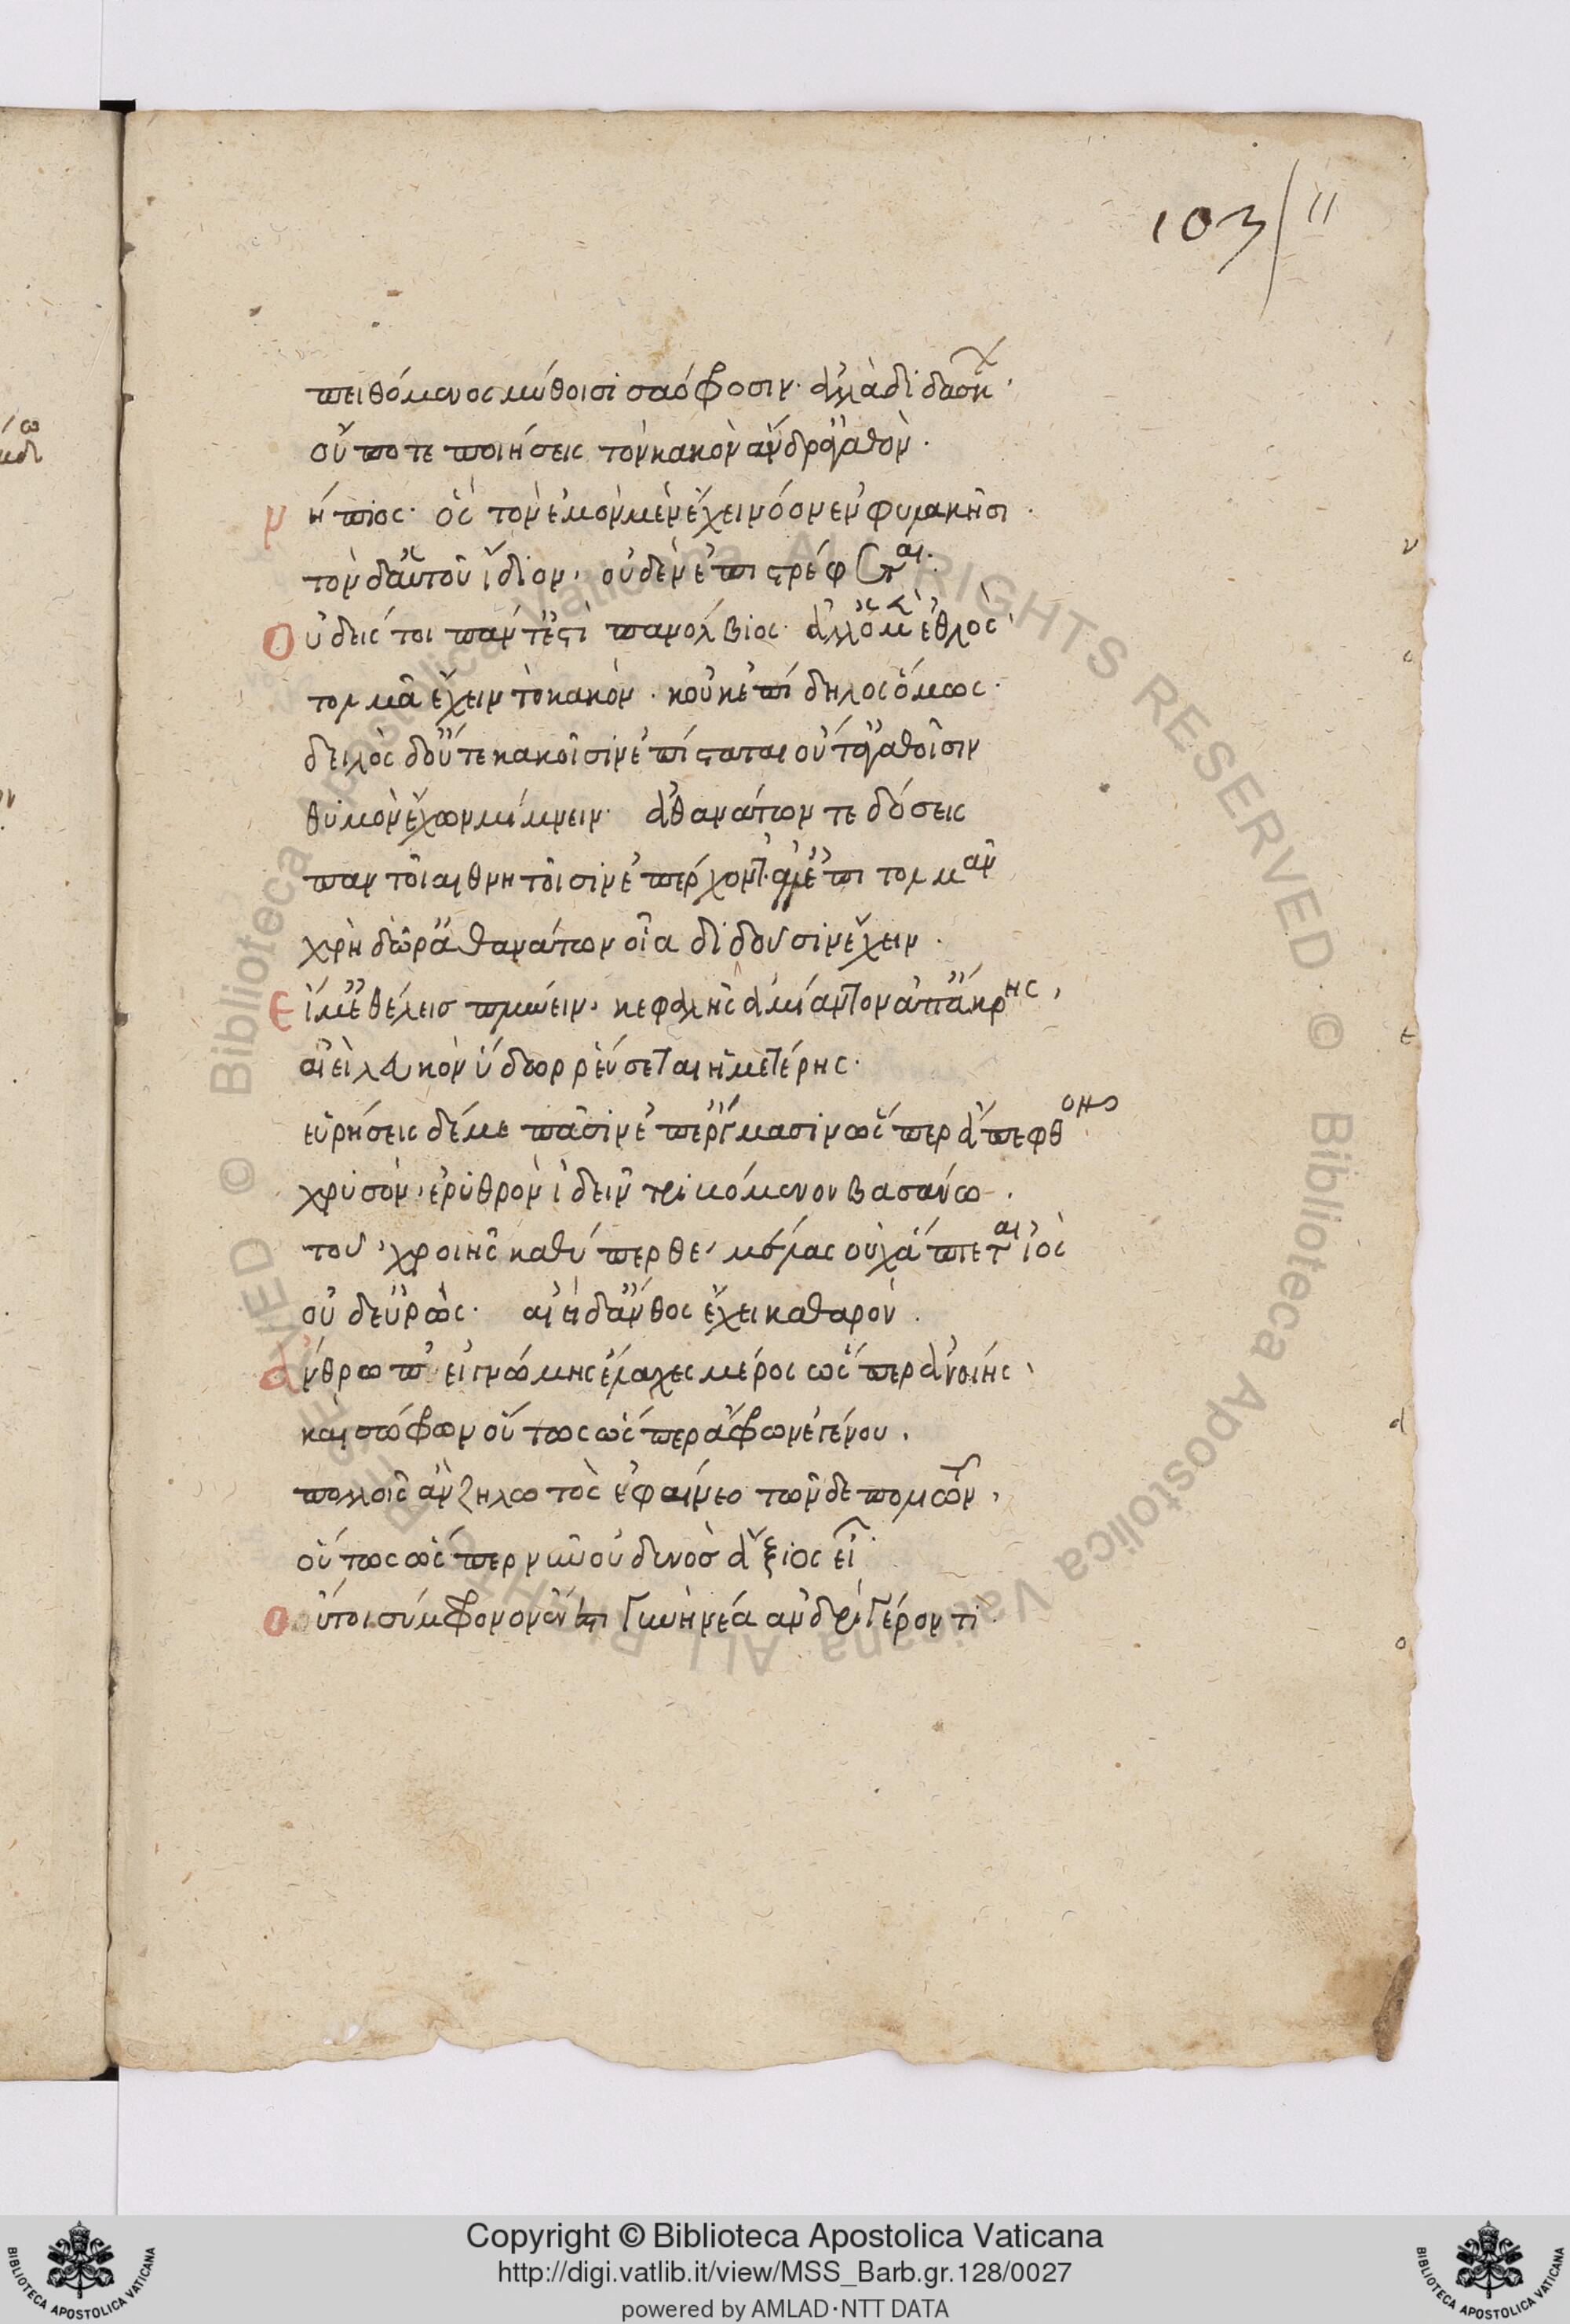 103/11
πειθόμενος μύθοισι σαόφροσιν· ἀλλὰ διδάσκων
οὔποτε ποιήσεις τὸν κακὸν ἄνδρ' ἀγαθόν.
νήπιος· ὃς τὸν ἐμὸν μὲν ἔχει νόον ἐν φυλακῆσι.
τὸν δ' αὐτοῦ ἴδιον, οὐδὲν ἐπιστρέφεται.
Οὐδείς τοι πάντ' ἐστὶ πανόλβιος· ἀλλ' ὁ μὲν ἐσθλὸς
τολμᾶ ἔχειν τὸ κακὸν. κοὐκ ἐπίδηλος ὅμως.
δειλὸς δ' οὔτε κακοῖσιν ἐπίσταται οὔτ' ἀγαθοῖσιν
θυμὸν ἔχων μίμνειν· ἀθανάτων τε δόσεις
παντοῖαι θνητοῖσιν ἐπέρχοντ'· ἀλλ' ἐπιτολμᾶν
χρὴ δῶρ' ἀθανάτων οἷα διδοῦσιν ἔχειν.
Εἴ μ' ἐθέλεις πλύνειν, κεφαλῆς ἀμίαντον ἀπ' ἄκρης,
αἰεὶ λευκὸν ὕδωρ ῥεύσεται ἡμετέρης.
εὑρήσεις δέ με πᾶσιν ἐπ' ἔργμασιν ὥσπερ ἄπεφθον
χρυσὸν, ἐρυθρὸν ἰδεῖν τριβόμενον βασάνω.
τοῦ, χροιῆς καθύπερθε, μέλας οὐχ ἅπτεται ἰὸς
οὐδ' εὐρὼς· αἰεὶ δ' ἄνθος ἔχει καθαρόν.
ἄνθρωπ' εἰ γνώμης ἔλαχες μέρος ὥσπερ ἀνοίης,
καὶ σώφρων οὕτως ὥσπερ ἄφρων ἐγένου.
πολλοῖς ἂν ζηλωτὸς ἐφαίνεο τῶνδε πολιτῶν,
οὕτως ὥσπερ νῦν οὐδενὸς ἄξιος εἶ
Οὔτοι σύμφορον ἐστι γυνὴ νέα ἀνδρὶ γέροντι.
Copyright © Biblioteca Apostolica Vaticana
http://digi.vatlib.it/view/MSS_Barb.gr.128/0027
powered by AMLAD·NTT DATA